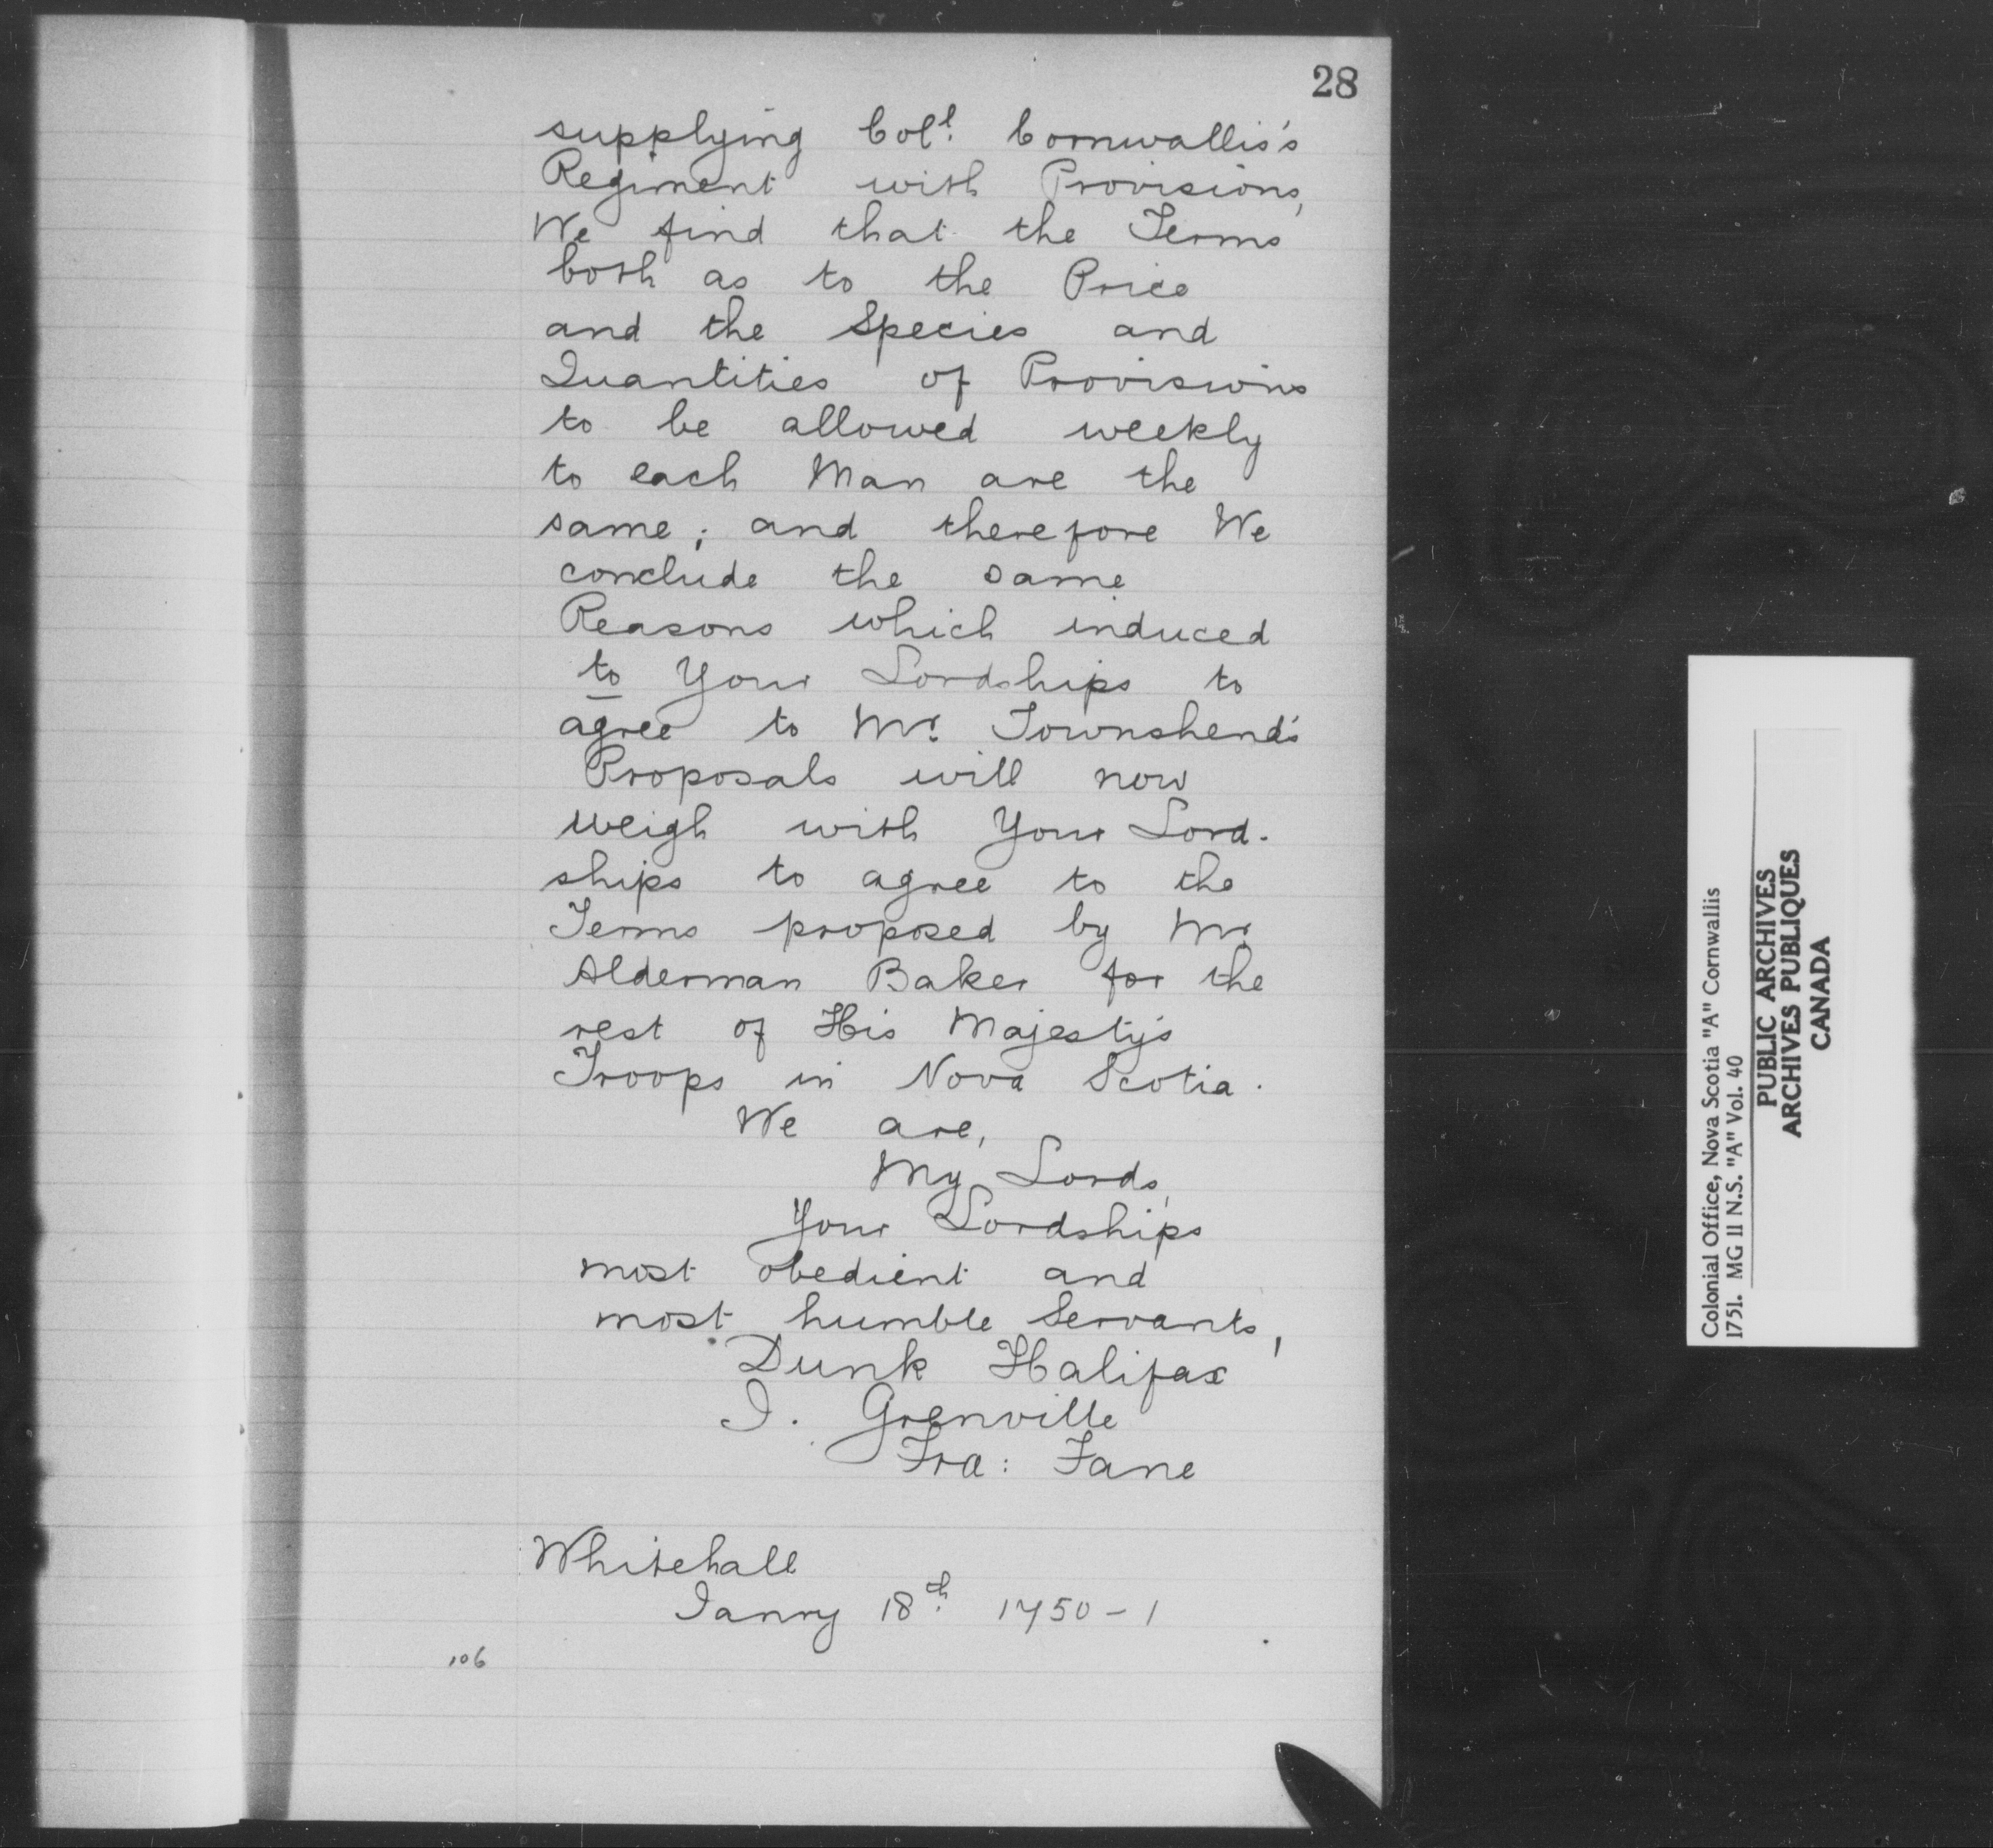 28
supplying Col.l Cornwallis's
Regiment with Provisions,
We find that the Terms
both as to the Price
and the Species and
Quantities of Provisions
to be allowed weekly
to each Man are the
same; and therefore We
conclude the same
Reasons which induced
to Your Lordships to
agree to Mr. Townshend's
Proposals will now
weigh with Your Lord-
ships to agree to the
Terms proposed by Mr.
Alderman Baker for the
rest of His Majesty's
Troops in Nova Scotia.
We are,
My Lords,
Your Lordships
most obedient and
most humble Servants,
Dunk Halifax
I. Grenville
Fra: Fane
Whitehall
Janry 18th. 1750-1
106
Colonial Office, Nova Scotia "A" Cornwallis
1751. MG II N.S. "A" Vol. 40
PUBLIC ARCHIVES
ARCHIVES PUBLIQUES
CANADA